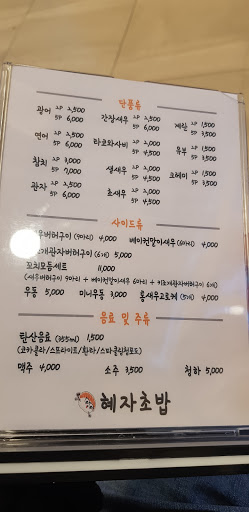 단품류
광어 2P 2,500 간장새우 2P 2,500 계란 2P 1,500
5P 6,000 5P 6,000 5P 3,500
연어 2P 2,500 타코와사비 2P 2,000 유부 2P 1,500
5P 6,000 5P 4,500 5P 3,500
참치 2P 3,000 생새우 2P 2,000 크레미 2P 1,500
5P 7,000 5P 4,500 5P 3,500
관자 2P 2,500 초새우 2P 2,000
5P 6,000 5P 4,500
사이드류
우버터구이 (9마리) 4,000 베이컨말이새우(6마리) 4,000
조개관자버터구이 (6개) 5,000
꼬치모둠세트 11,000
(새우버터구이 9마리 + 베이컨말이새우 6마리 + 키조개관자버터구이 6개)
우동 5,000 미니우동 3,000 통새우고로케 (5개) 4,000
음료 및 주류
탄산음료 (355ml) 1,500
(코카콜라/스프라이트/환타/스파클링청포도)
맥주 4,000 소주 3,500 청하 5,000
혜자초밥